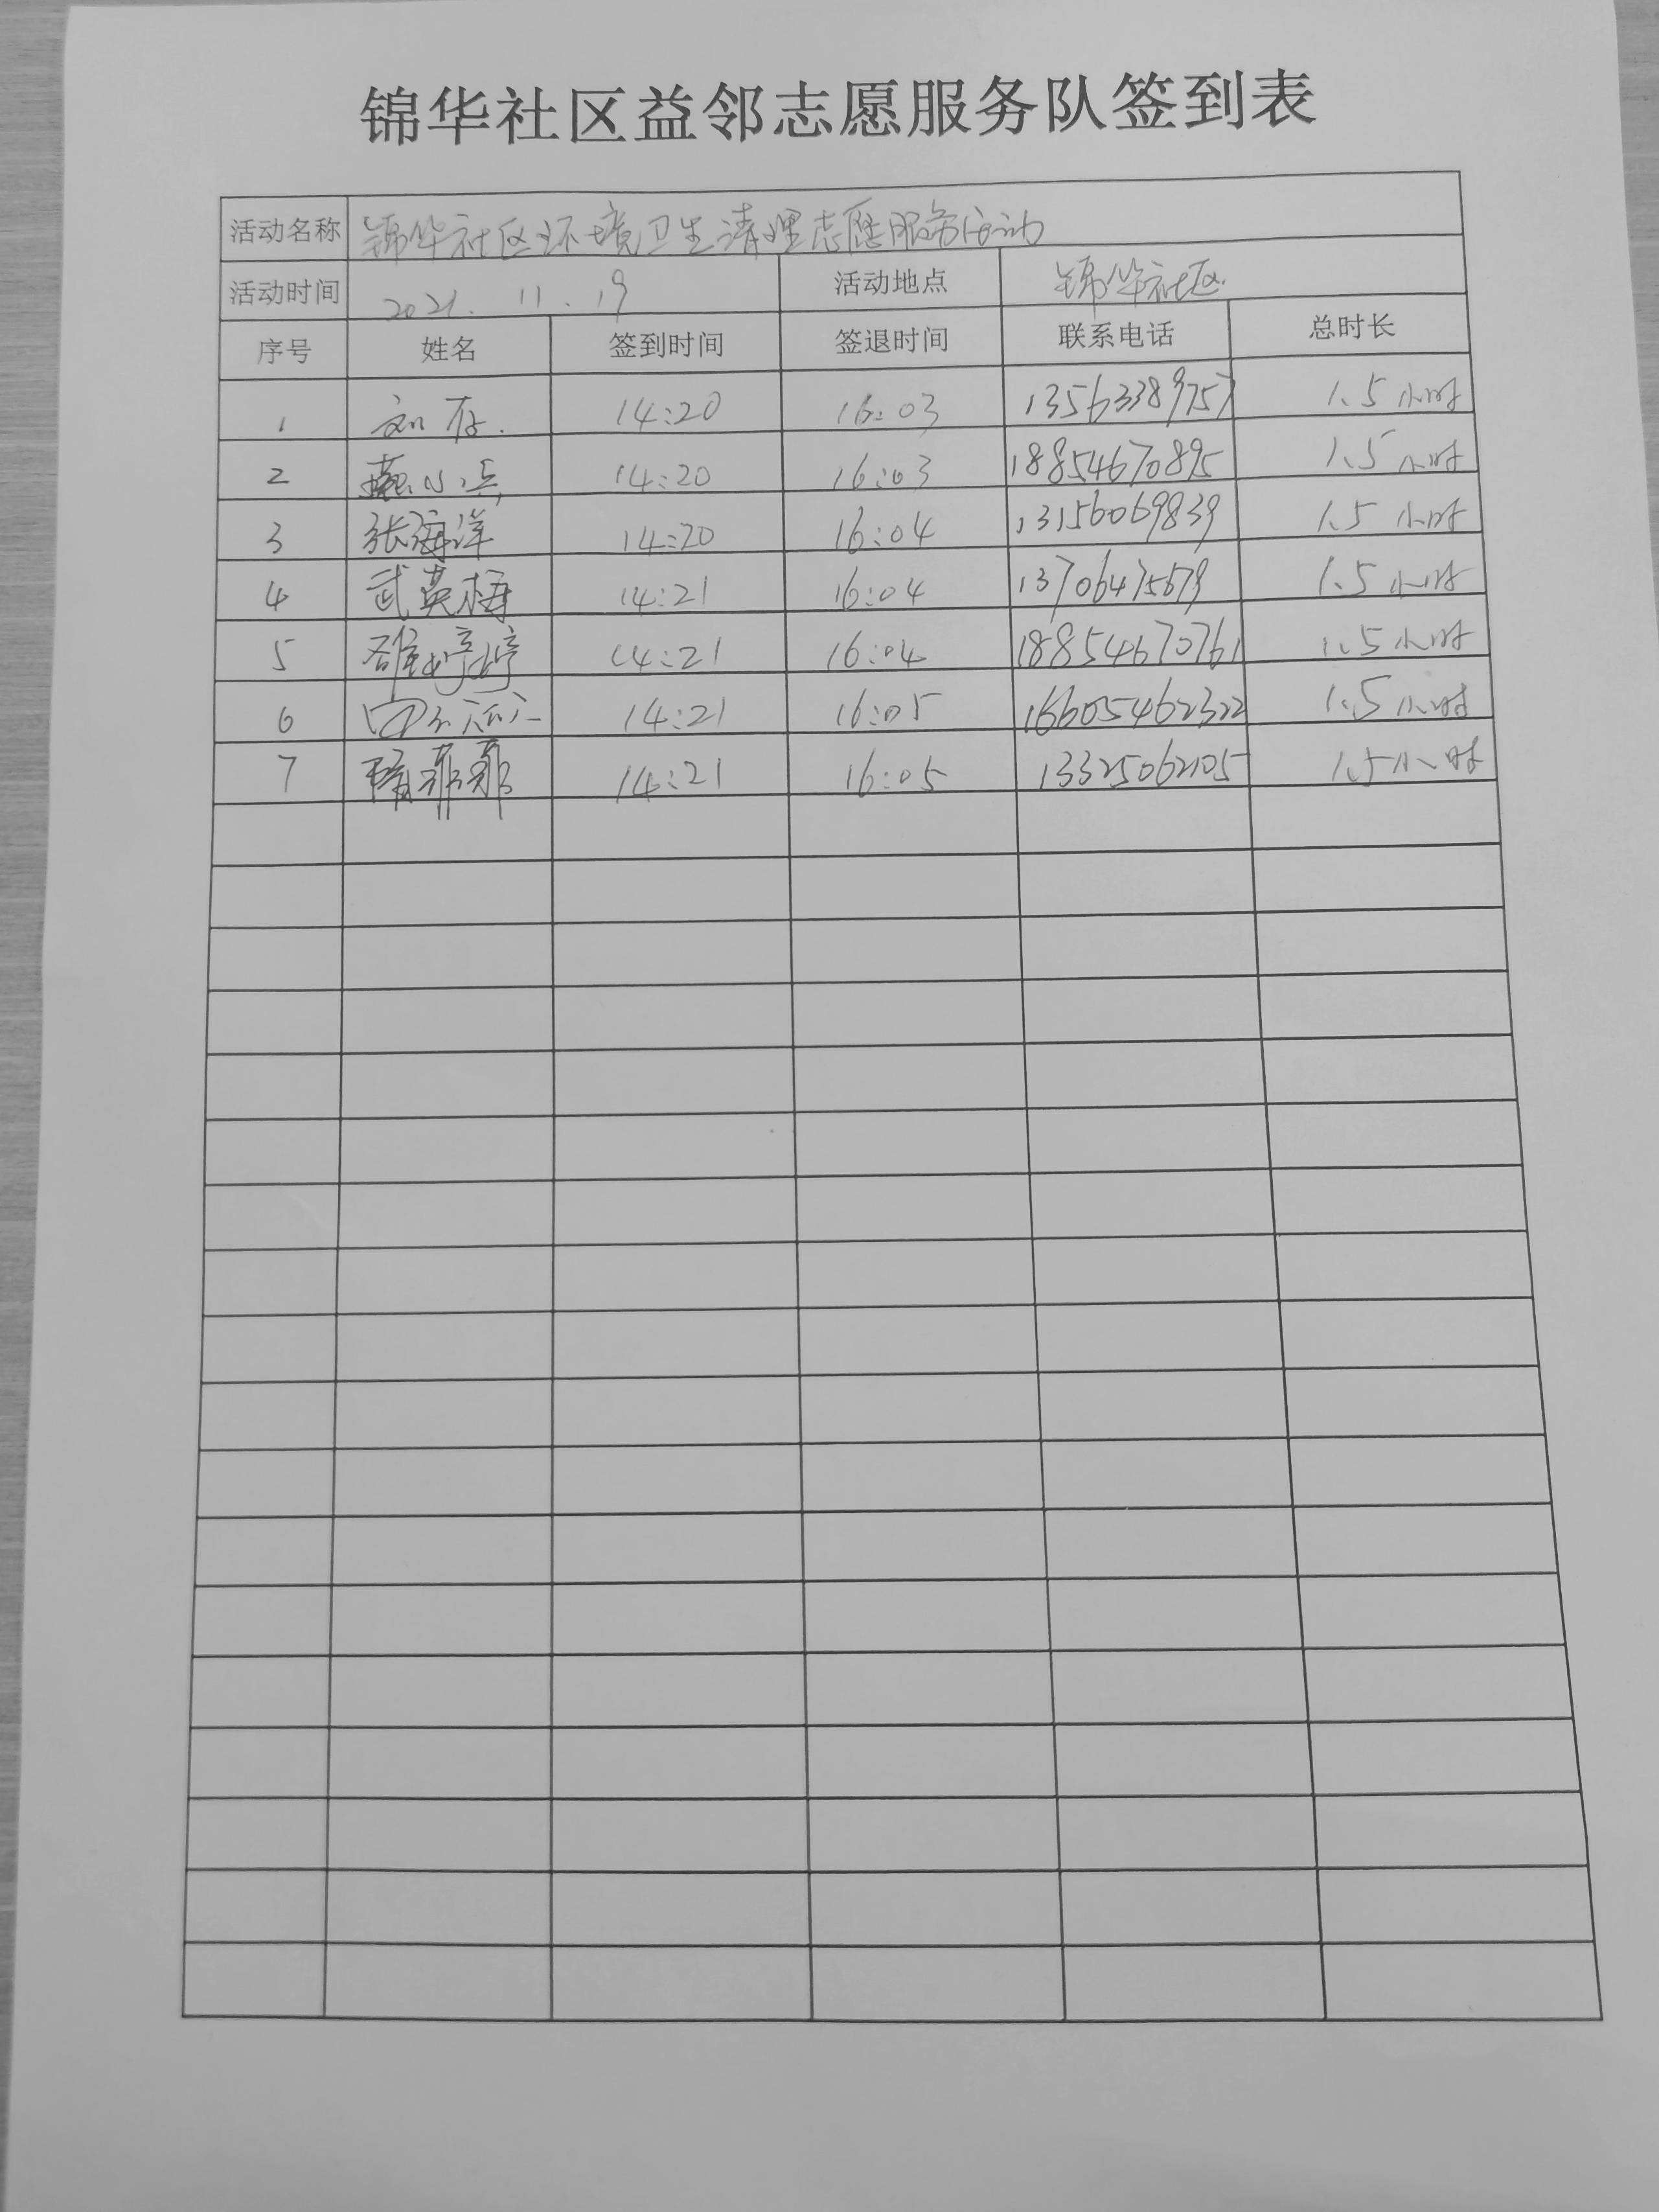 锦华社区益邻志愿服务队签到表
活动名称 锦华社区环境卫生清理志愿服务活动
活动时间 2021.11.19 活动地点 锦华社区
序号 姓名 签到时间 签退时间 联系电话 总时长
1 刘存 14:20 16:03 13563389757 1.5小时
2 14:20 16:03 18854670895 1.5小时
3 张海洋 14:20 16:04 13156069839 1.5小时
4 武英梅 14:21 16:04 13706475679 1.5小时
5 婷婷 14:21 16:04 18854670761 1.5小时
6 14:21 16:05 1.5小时
7 菲菲 14:21 16:05 13325062105 1.5小时